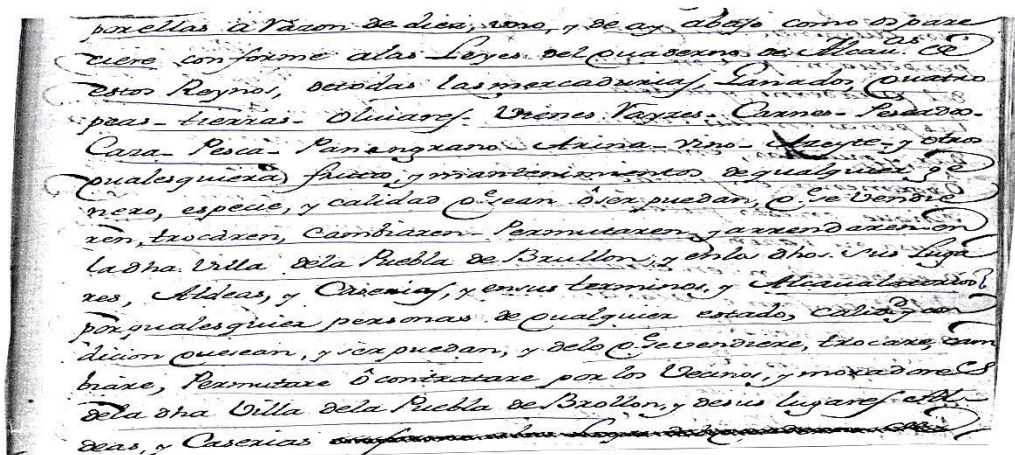 por ellas à Razon de diez, vno, y de ay abajo como os pare
ciere conforme alas Leyes del quaderno de Alcau.as de
estos Reynos, detodas las mercadurias, Ganados, quatro
peas - tierras - oliuares - Vienes Rayzes - Carnes - Pescado -
Caza - Pesca - Pan en grano Arina - vino - Azeyte - y otros
qualesquiera fruto, y mantenimientos de qualquier ge
nero, especie, y calidad q.e sean ô ser puedan, q.e se Vendie
ren, trocaren, Cambiaren - Permutaren, y arrendaren en
la dha. Villa dela Puebla de Brullon, y enlos dhos. sus Luga
res, Aldeas, y Caserias, y ensus terminos, y Alcaualatorios
por qualesquier personas de qualquier estado, calid.d y con
dicion quesean, y ser puedan, y delo q.e sevendiere, trocare, cam
biare, Permutare ô contratare por los Vecinos, y moradores
dela dha Villa dela Puebla de Brollon, y desus lugares Al-
deas, y Caserias